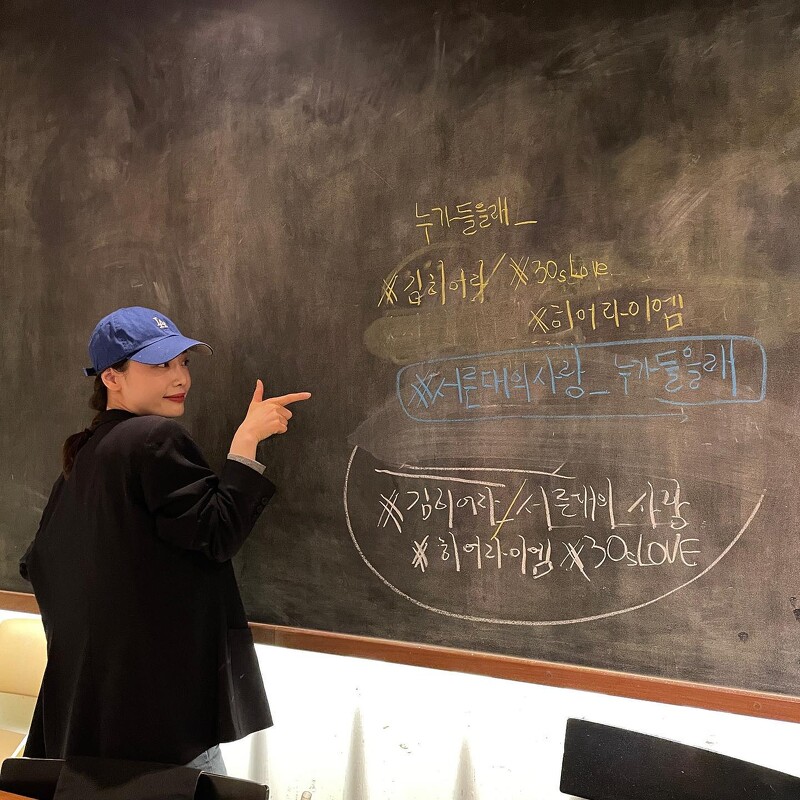 LA
누가들을래_
#김히어라/#30sLove
#히어라이엠
#서른대의사랑_누가들을래
#김히어라_서른대의_사랑
#히어라이엠 #30sLOVE